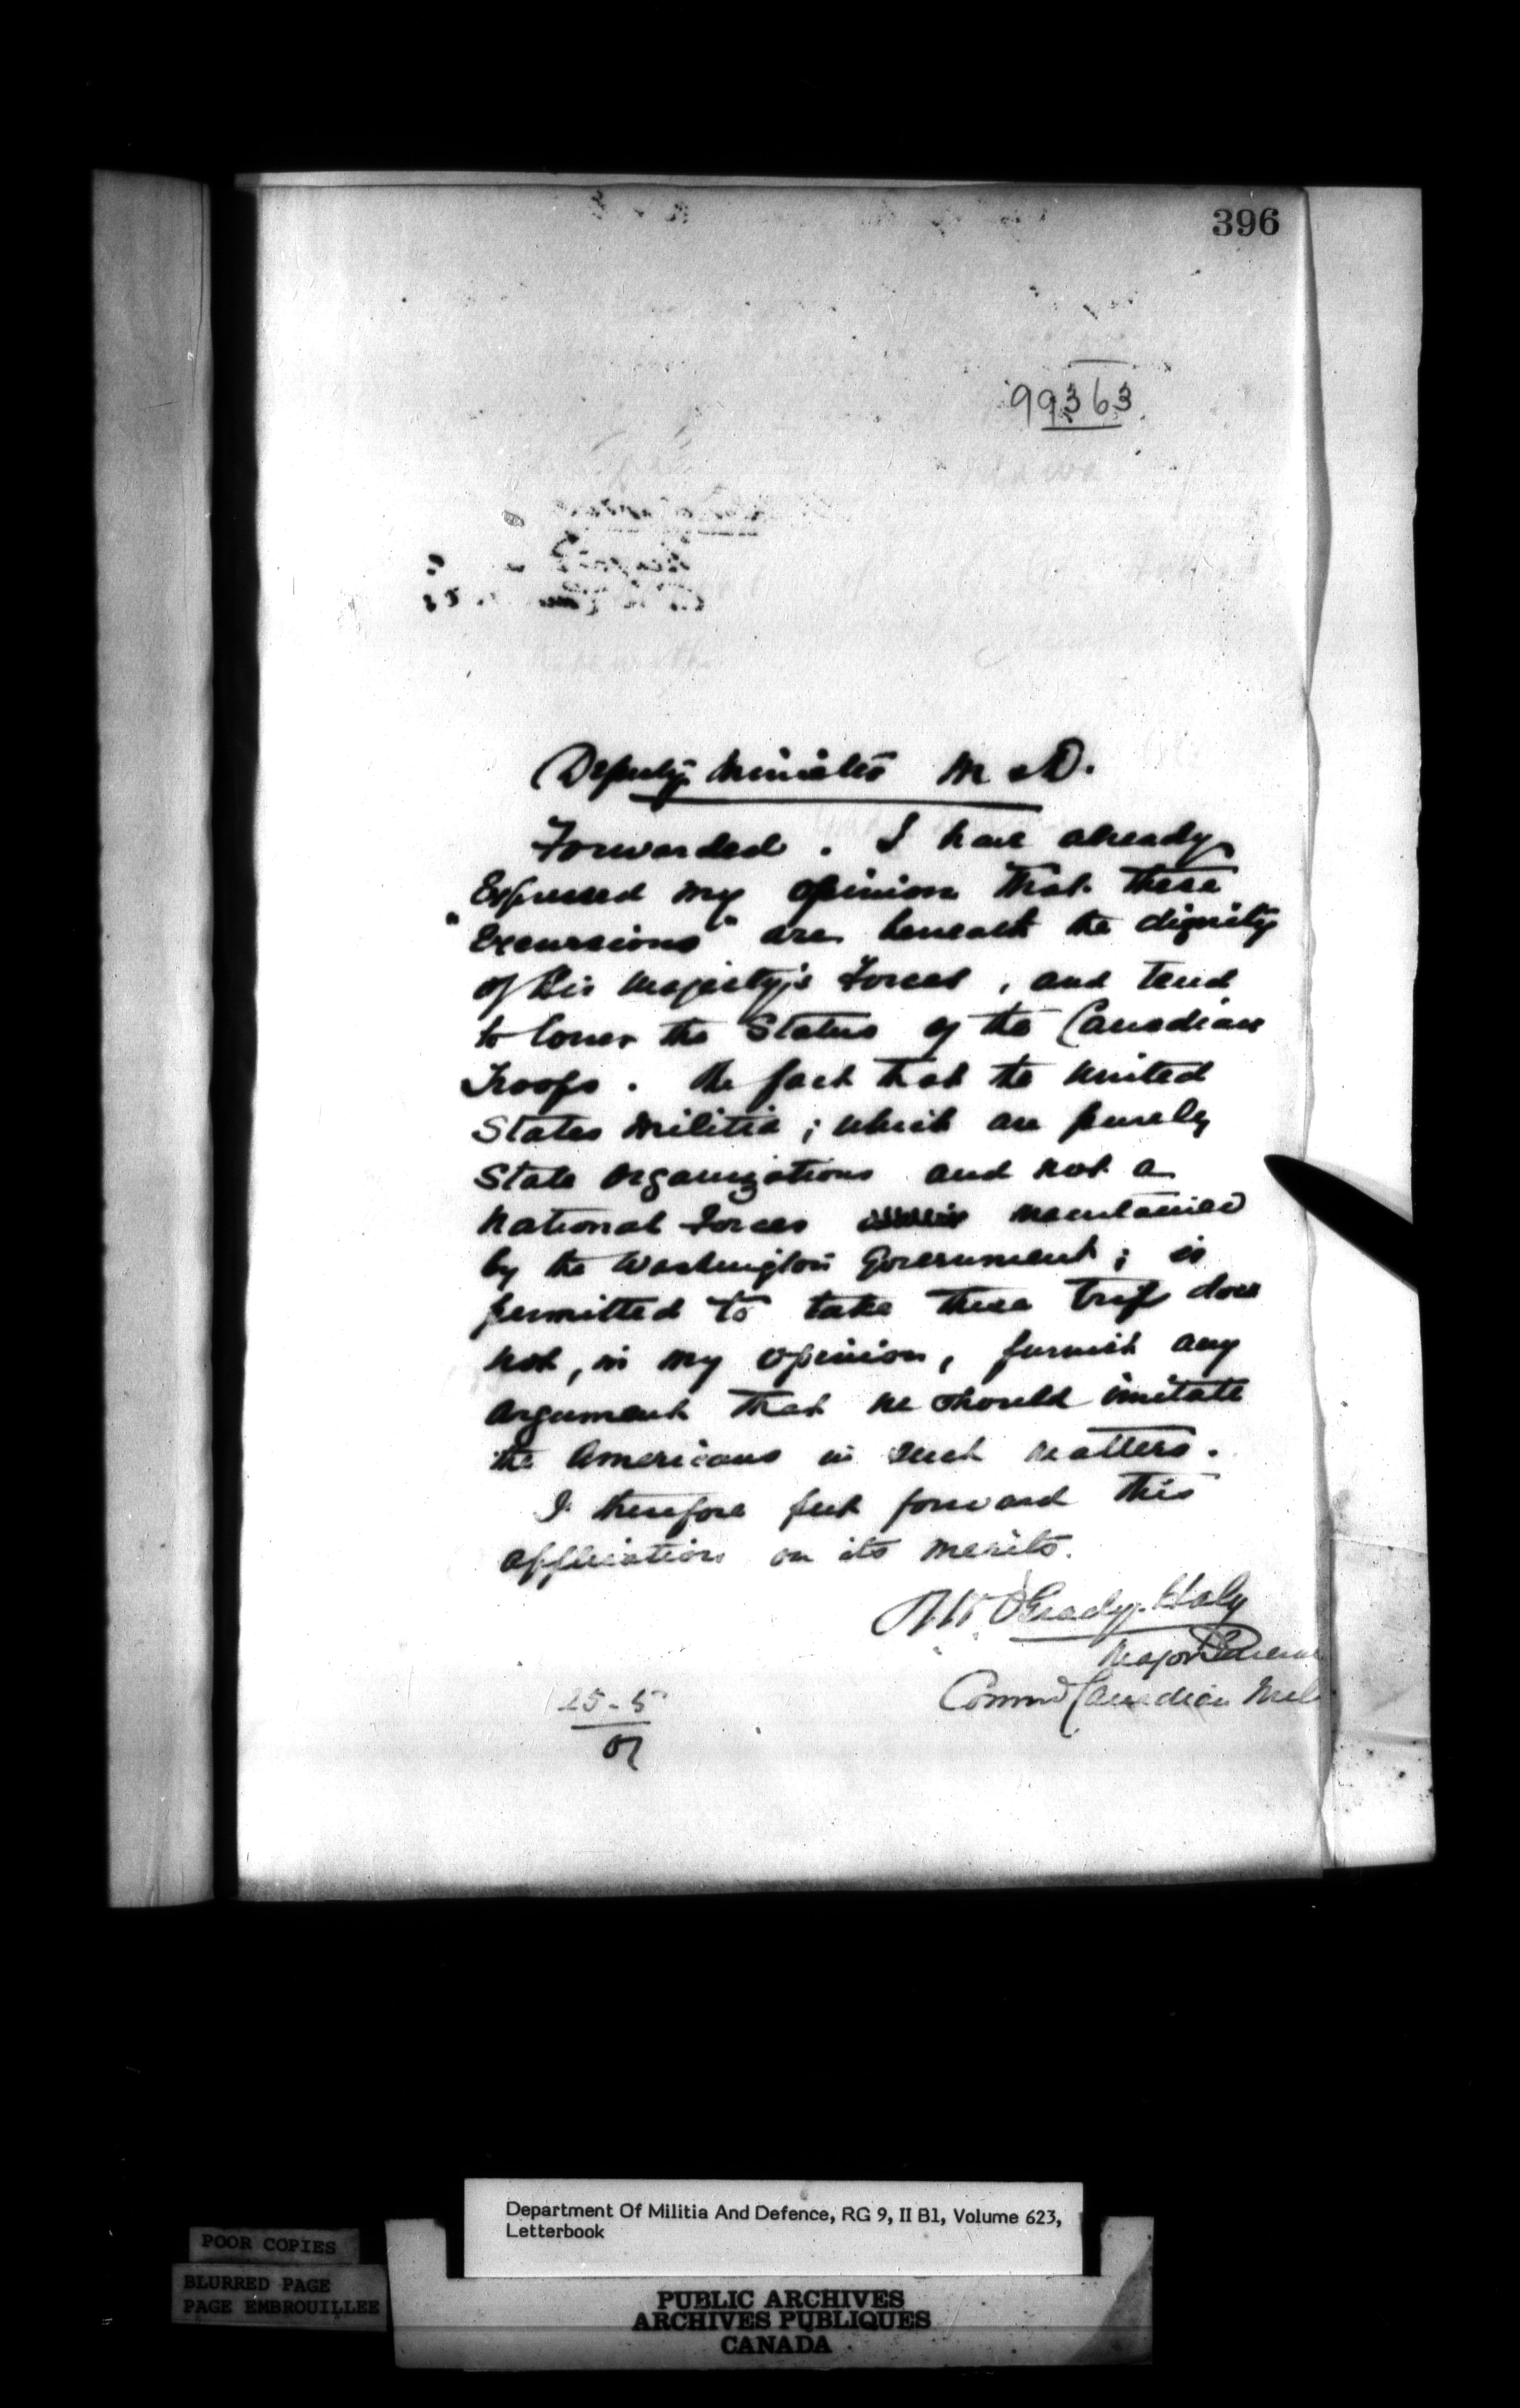 396
99363
Deputy Minister M & D.
Forwarded. I have already
Expressed my opinion that these
"Excursions" are beneath the dignity
of His Majesty's Forces, and tend
to lower the Status of the Canadian
Troops. The fact that the United
States Militia; which are purely
State Organizations and not a
National Forces maintained
by the Washington Government; is
permitted to take these trips does
not, in my opinion, furnish any
argument that we should imitate
the Americans in such matters.
I therefore forward this
application on its merits.
O'Grady-Haly
Major General
Commd Canadian Mil
25-5
01
Department Of Militia And Defence, RG 9, II B1, Volume 623,
Letterbook
POOR COPIES
BLURRED PAGE
PAGE EMBROUILLEE
PUBLIC ARCHIVES
ARCHIVES PUBLIQUES
CANADA